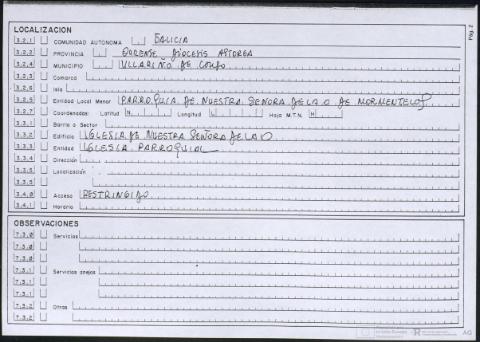 Pág. 2
LOCALIZACION
3.2.1 COMUNIDAD AUTONOMA GALICIA
3.2.2 PROVINCIA ORENSE DIOCESIS ASTORGA
3.2.4 MUNICIPIO VILLARIÑO DE CONSO
3.2.3 Comarca
3.2.6 Isla
3.2.5 Entidad Local Menor PARROQUIA DE NUESTRA SEÑORA DE LA O DE MORMENTELOS
3.2.7 Coordenadas: Latitud N Longitud Hoja M.T.N. H
3.3.1 Barrio o Sector
3.3.2 Edificio IGLESIA DE NUESTRA SEÑORA DE LA O
3.3.3 Entidad IGLESIA PARROQUIAL
3.3.4 Dirección
3.3.5 Localización
3.3.5
3.4.0 Acceso RESTRINGIDO
3.4.1 Horario
OBSERVACIONES
7.3.0 Servicios
7.3.0
7.3.0
7.3.1 Servicios anejos
7.3.1
7.3.1
7.3.2 Otros
7.3.2
AG